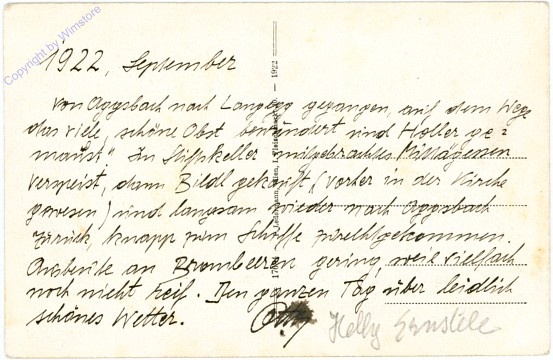 Copyright by Wimstore
1922, September
von Aggsbach nach Langegg gegangen, auf dem Wege
das viele, schöne Obst bewundert und Holler "ge=
maust". Im Stiftskeller mitgebrachtes Mittagessen
verspeist, dann Bildl gekauft, (vorher in der Kirche
gewesen) und langsam wieder nach Aggsbach
zurück, knapp zum Schiffe zurechtgekommen.
Ausbeute an Brombeeren gering, weil vielfach
noch nicht reif. Den ganzen Tag über leidlich
schönes Wetter.
Helly
1922